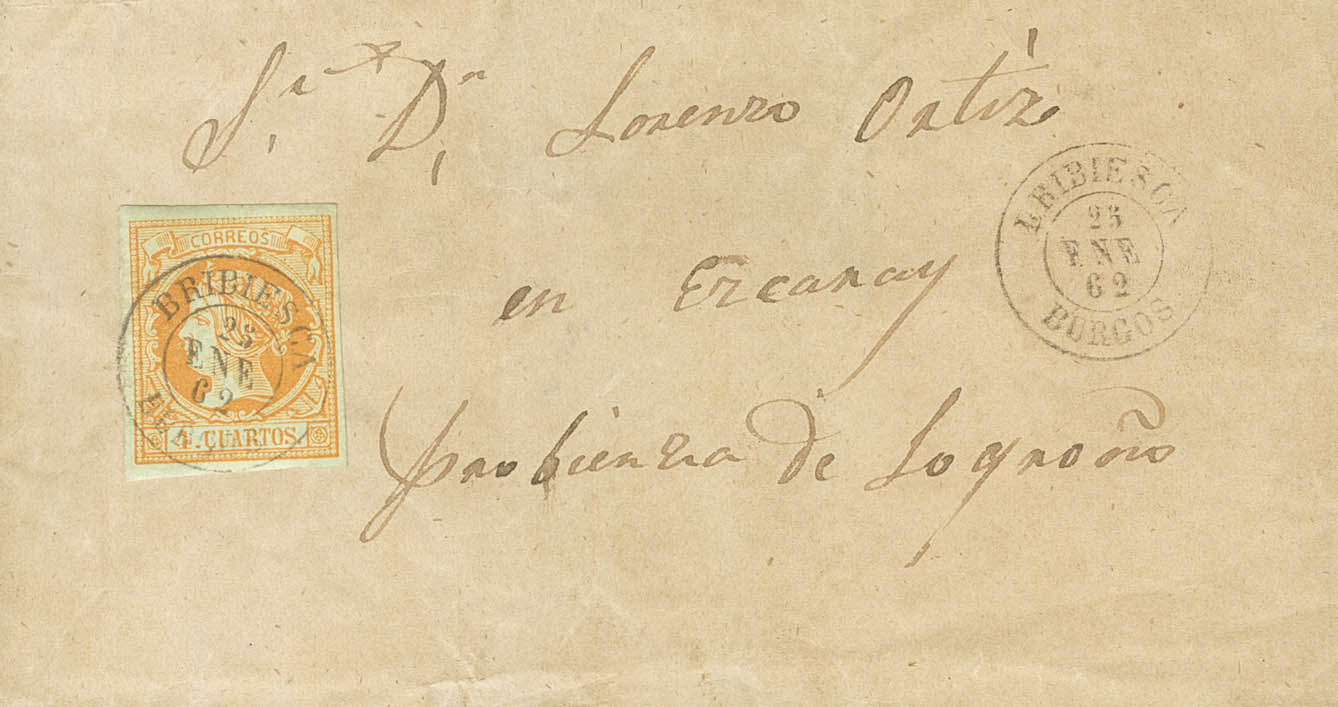 Sr. Dn. Lorenzo Ortiz
en Ezcaray
probienza de Logroño
CORREOS
4. CUARTOS.
BRIBIESCA
ENE
62
BRIBIESCA
23
ENE
62
BURGOS